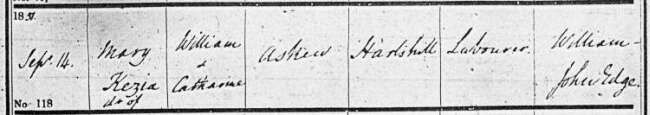 18
Sept. 14.
No 118
Mary
Kezia
dr of
William
&
Catharine
Askew
Hartshill
Labourer.
William
John Edge.